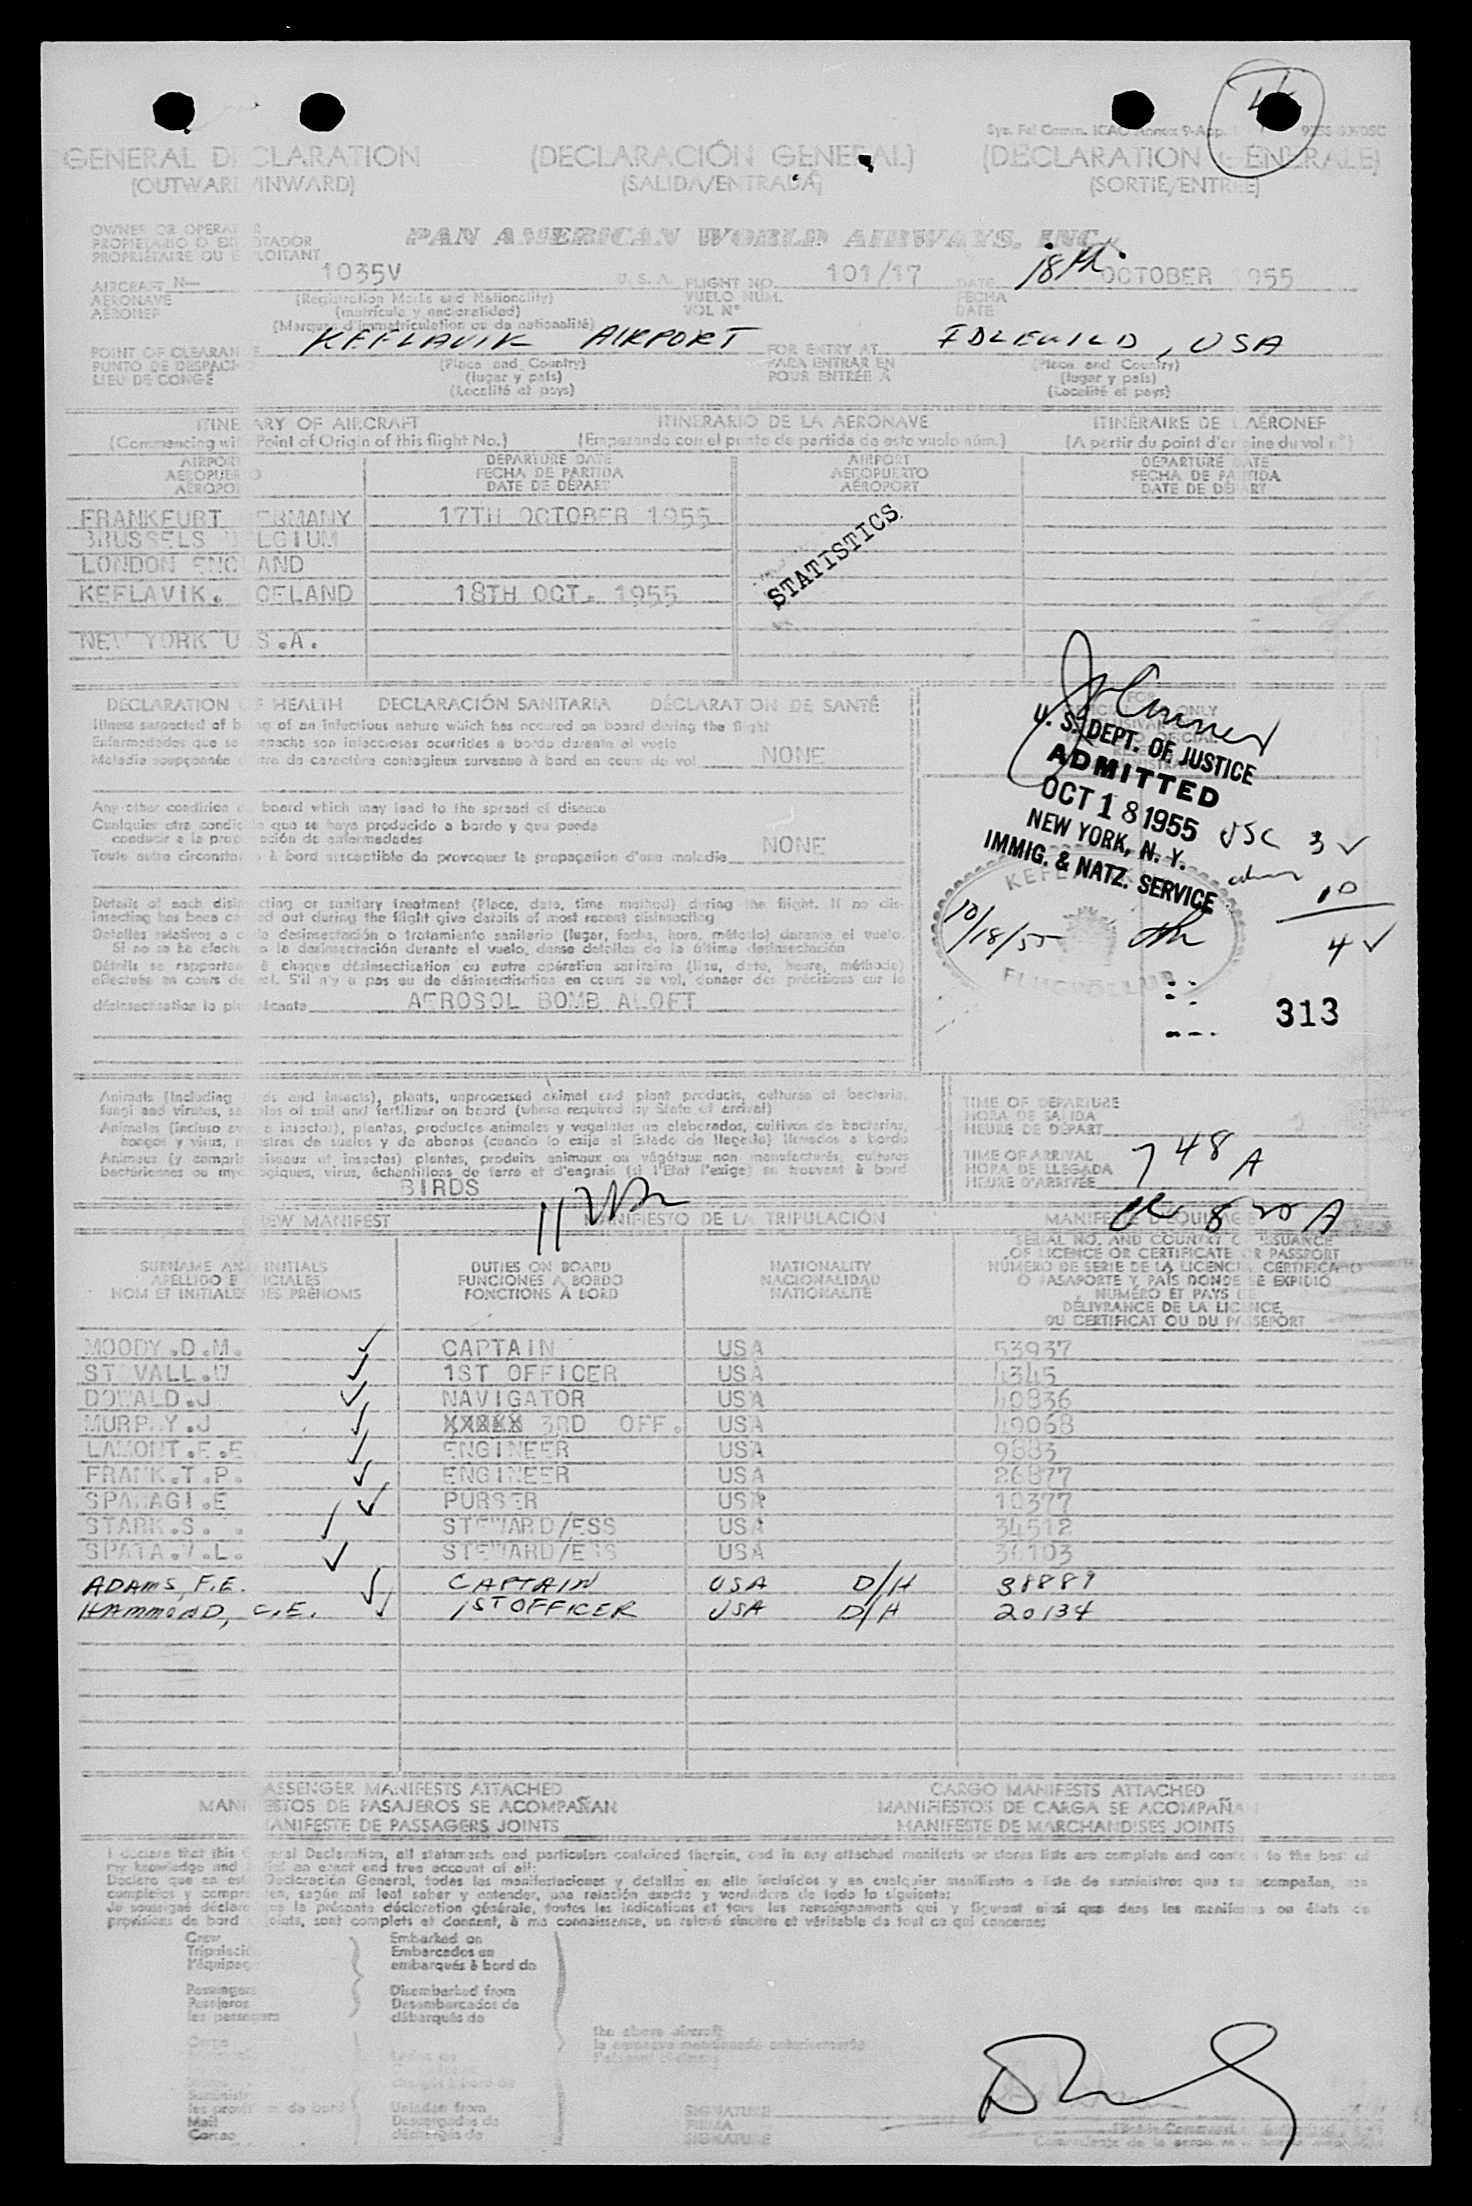 Sys. Fel Comm. ICAO Annex 9-App.
GENERAL DECLARATION (DECLARACIÓN GENERAL) (DECLARATION GENERALE)
(OUTWARD/INWARD) (SALIDA/ENTRADA) (SORTIE/ENTREE)
OWNER OR OPERATOR
PROPIETARIO O EXPLOTADOR PAN AMERICAN WORLD AIRWAYS, INC.
PROPRIÉTAIRE OU EXPLOITANT
AIRCRAFT N— 1035V U.S.A. FLIGHT NO. 101/17 DATE 18th OCTOBER 1955
AERONAVE (Registration Marks and Nationality) VUELO NUM. FECHA
AÉRONEF (matrícula y nacionalidad) VOL N° DATE
(Marques d'immatriculation ou de nationalité)
POINT OF CLEARANCE KEFLAVIK AIRPORT FOR ENTRY AT IDLEWILD, USA
PUNTO DE DESPACHO (Place and Country) PARA ENTRAR EN (Place and Country)
LIEU DE CONGÉ (lugar y país) POUR ENTRÉE À (lugar y país)
(Localité et pays) (Localité et pays)
ITINERARY OF AIRCRAFT ITINERARIO DE LA AERONAVE ITINÉRAIRE DE L'AÉRONEF
(Commencing with Point of Origin of this flight No.) (Empezando con el punto de partida de este vuelo núm.) (A partir du point d'origine du vol n°)
AIRPORT DEPARTURE DATE AIRPORT DEPARTURE DATE
AEROPUERTO FECHA DE PARTIDA AEROPUERTO FECHA DE PARTIDA
AEROPORT DATE DE DÉPART AÉROPORT DATE DE DÉPART
FRANKFURT GERMANY 17TH OCTOBER 1955
BRUSSELS BELGIUM
LONDON ENGLAND
STATISTICS
KEFLAVIK. ICELAND 18TH OCT. 1955
NEW YORK U.S.A.
DECLARATION OF HEALTH DECLARACIÓN SANITARIA DÉCLARATION DE SANTÉ
Illness suspected of being of an infectious nature which has occured on board during the flight
Enfermedades que se sospecha son infecciosas ocurridas a bordo durante el vuelo
Maladie soupçonnée d'être de caractère contagieux survenue à bord en cours de vol NONE
Any other condition on board which may lead to the spread of disease
Cualquier otra condición que se haya producido a bordo y que pueda
conducir a la propagación de enfermedades
Toute autre circonstance à bord susceptible de provoquer la propagation d'une maladie NONE
U. S. DEPT. OF JUSTICE
ADMITTED
OCT 18 1955
NEW YORK, N. Y.
IMMIG. & NATZ. SERVICE
USC 3
10
4
10/18/55
313
Details of each disinsecting or sanitary treatment (Place, date, time method) during the flight. If no dis-
insecting has been carried out during the flight give details of most recent disinsecting
Detalles relativos a cada desinsectación o tratamiento sanitario (lugar, fecha, hora, método) durante el vuelo.
Si no se ha efectuado la desinsectación durante el vuelo, dense detalles de la última desinsectación
Détails se rapportant à chaque désinsectisation ou autre opération sanitaire (lieu, date, heure, méthode)
effectuée en cours de vol. S'il n'y a pas eu de désinsectisation en cours de vol, donner des précisions sur la
désinsectisation la plus récente AEROSOL BOMB ALOFT
Animals (Including birds and insects), plants, unprocessed animal and plant products, cultures of bacteria,
fungi and viruses, samples of soil and fertilizer on board (where required by State of arrival)
Animales (incluso aves e insectos), plantas, productos animales y vegetales no elaborados, cultivos de bacterias,
hongos y virus, muestras de suelos y de abonos (cuando lo exija el Estado de llegada) llevados a bordo
Animaux (y compris oiseaux et insectes) plantes, produits animaux ou végétaux non manufacturés, cultures
bactériennes ou mycologiques, virus, échantillons de terre et d'engrais (si l'Etat l'exige) se trouvant à bord
BIRDS
TIME OF DEPARTURE
HORA DE SALIDA
HEURE DE DÉPART
TIME OF ARRIVAL 7 48 A
HORA DE LLEGADA
HEURE D'ARRIVÉE
CREW MANIFEST MANIFIESTO DE LA TRIPULACIÓN MANIFESTE D'EQUIPAGE
SURNAME AND INITIALS DUTIES ON BOARD NATIONALITY SERIAL NO. AND COUNTRY OF ISSUANCE
APELLIDO E INICIALES FUNCIONES A BORDO NACIONALIDAD OF LICENCE OR CERTIFICATE OR PASSPORT
NOM ET INITIALES DES PRÉNOMS FONCTIONS À BORD NATIONALITÉ NÚMERO DE SERIE DE LA LICENCIA, CERTIFICADO
O PASAPORTE Y PAÍS DONDE SE EXPIDIÓ
NUMÉRO ET PAYS DE
DÉLIVRANCE DE LA LICENCE,
DU CERTIFICAT OU DU PASSEPORT
MOODY.D.M. CAPTAIN USA 53937
ST VALL.W 1ST OFFICER USA 4345
DONALD.J NAVIGATOR USA 40836
MURPHY.J XXXXX 3RD OFF. USA 49068
LAMONT.F.E ENGINEER USA 9883
FRANK.T.P. ENGINEER USA 26877
SPANAGI.E PURSER USA 10377
STARK.S. STEWARD/ESS USA 34512
SPATA.V.L. STEWARD/ESS USA 36103
ADAMS, F.E. CAPTAIN USA D/H 38889
HAMMOND, C.E. 1ST OFFICER USA D/H 20134
PASSENGER MANIFESTS ATTACHED CARGO MANIFESTS ATTACHED
MANIFIESTOS DE PASAJEROS SE ACOMPAÑAN MANIFIESTOS DE CARGA SE ACOMPAÑAN
MANIFESTE DE PASSAGERS JOINTS MANIFESTE DE MARCHANDISES JOINTS
I declare that this General Declaration, all statements and particulars contained therein, and in any attached manifests or stores lists are complete and correct to the best of
my knowledge and belief an exact and true account of all:
Declaro que en esta Declaración General, todas las manifestaciones y detalles en ella incluidos y en cualquier manifiesto o lista de suministros que se acompañan, son
completos y comprenden, según mi leal saber y entender, una relación exacta y verdadera de todo lo siguiente:
Je soussigné déclare que la présente déclaration générale, toutes les indications et tous les renseignements qui y figurent ainsi que dans les manifestes ou états de
provisions de bord joints, sont complets et donnent, à ma connaissance, un relevé sincère et véritable de tout ce qui concerne:
Crew Embarked on
Tripulación Embarcados en
l'équipage embarqués à bord de
Passengers Disembarked from
Pasajeros Desembarcados de
les passagers débarqués de
the above aircraft
Cargo
les provisions de bord Unladen from
Mail Descargados de
Correo déchargés de
SIGNATURE
FIRMA
SIGNATURE